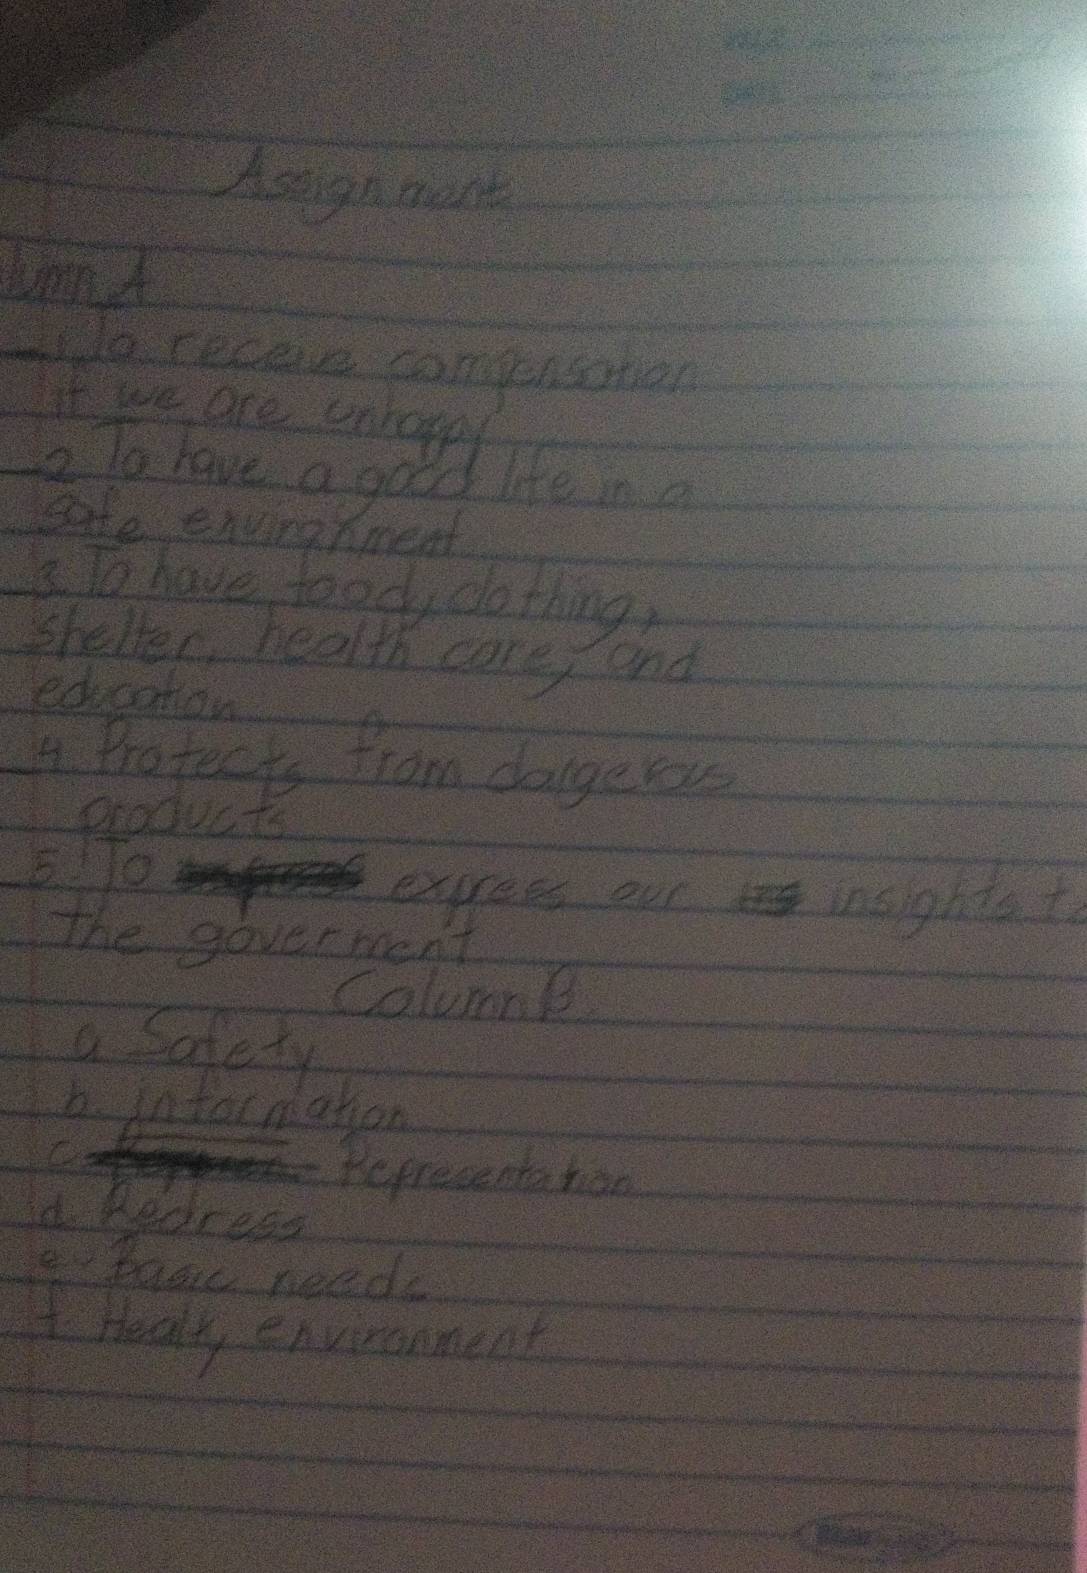 Assignment
lumn A
1. To receive compensation
if we are unhappy
2. To have a good life in a
safe environment
3. To have food, clothing,
shelter, health care, and
education
4. Protects from dangerous
products
5. To express our insights to
the goverment
Column B.
a. Safety
b. information
c. Representation
d. Redress
e. Basic needs
f. Healty environment